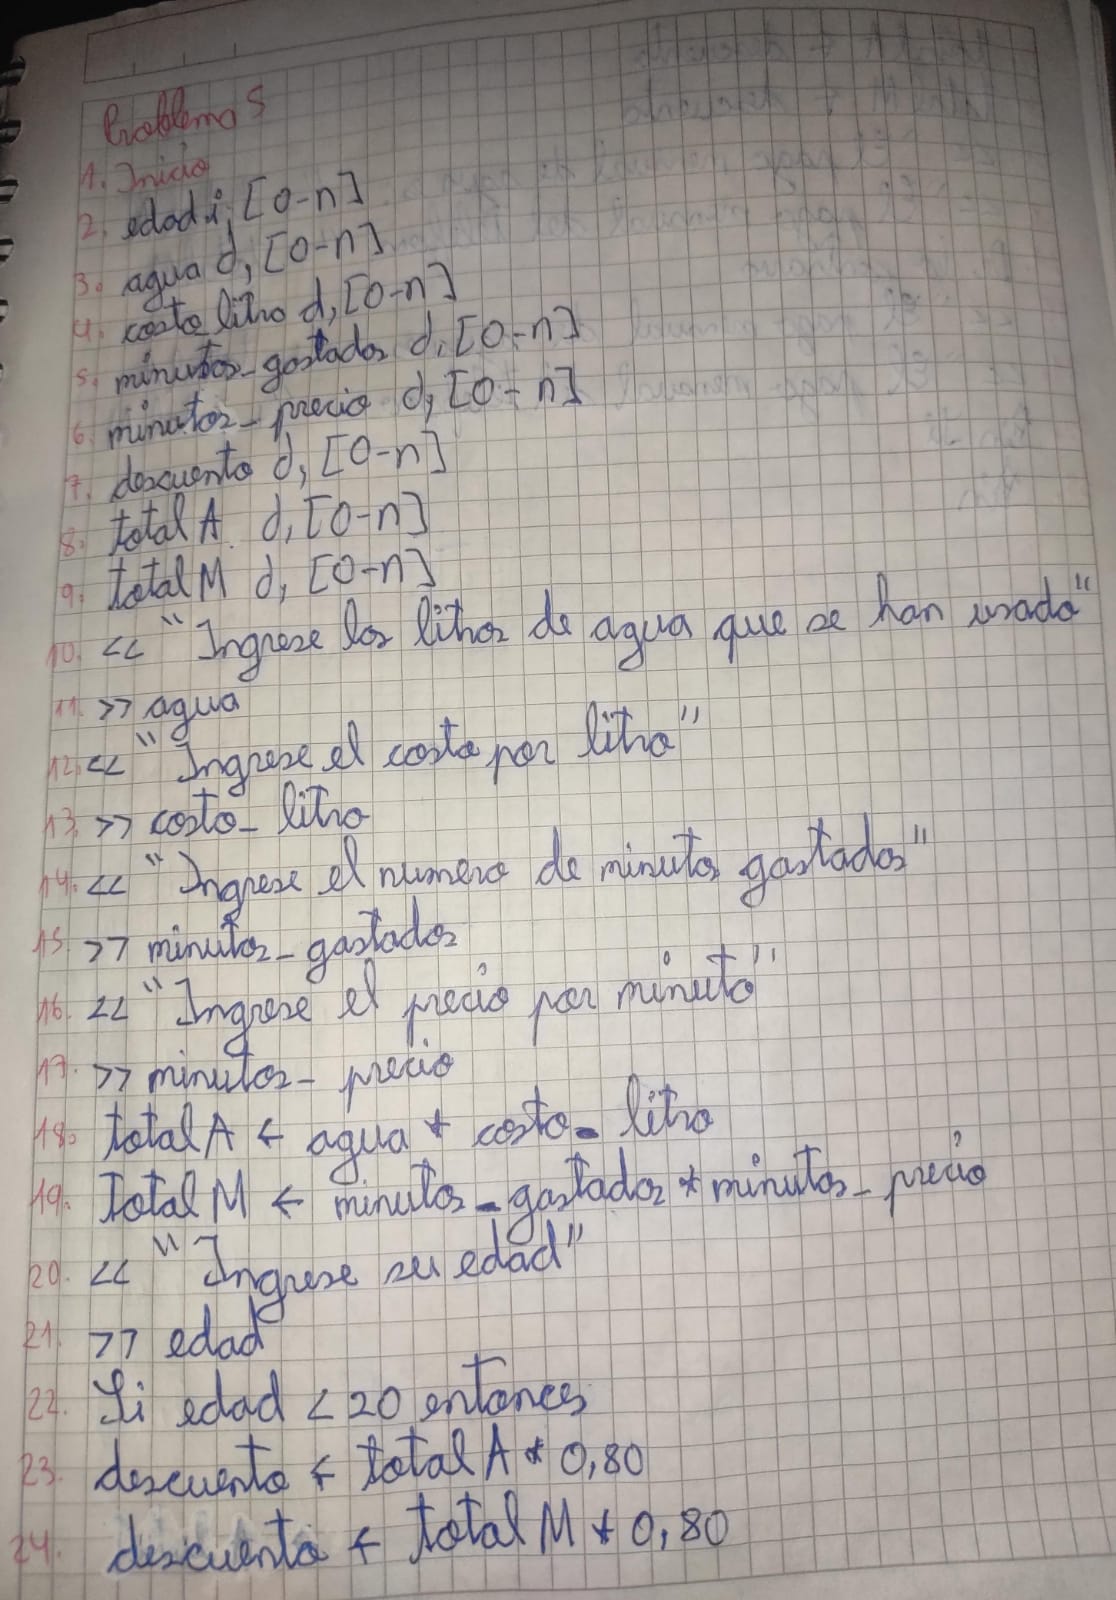 Problema 5
1. Inicio
2. edad i, [0-n]
3. agua d, [0-n]
4. costo_litro d, [0-n]
5. minutos_gastados d, [0-n]
6. minutos_precio d, [0-n]
7. descuento d, [0-n]
8. total A d, [0-n]
9. total M d, [0-n]
10. << "Ingrese los litros de agua que se han usado"
11. >> agua
12. << "Ingrese el costo por litro"
13. >> costo_litro
14. << "Ingrese el numero de minutos gastados"
15. >> minutos_gastados
16. << "Ingrese el precio por minuto"
17. >> minutos_precio
18. total A ← agua * costo_litro
19. Total M ← minutos_gastados * minutos_precio
20. << "Ingrese su edad"
21. >> edad
22. Si edad < 20 entonces
23. descuento ← total A * 0,80
24. descuento ← total M * 0,80